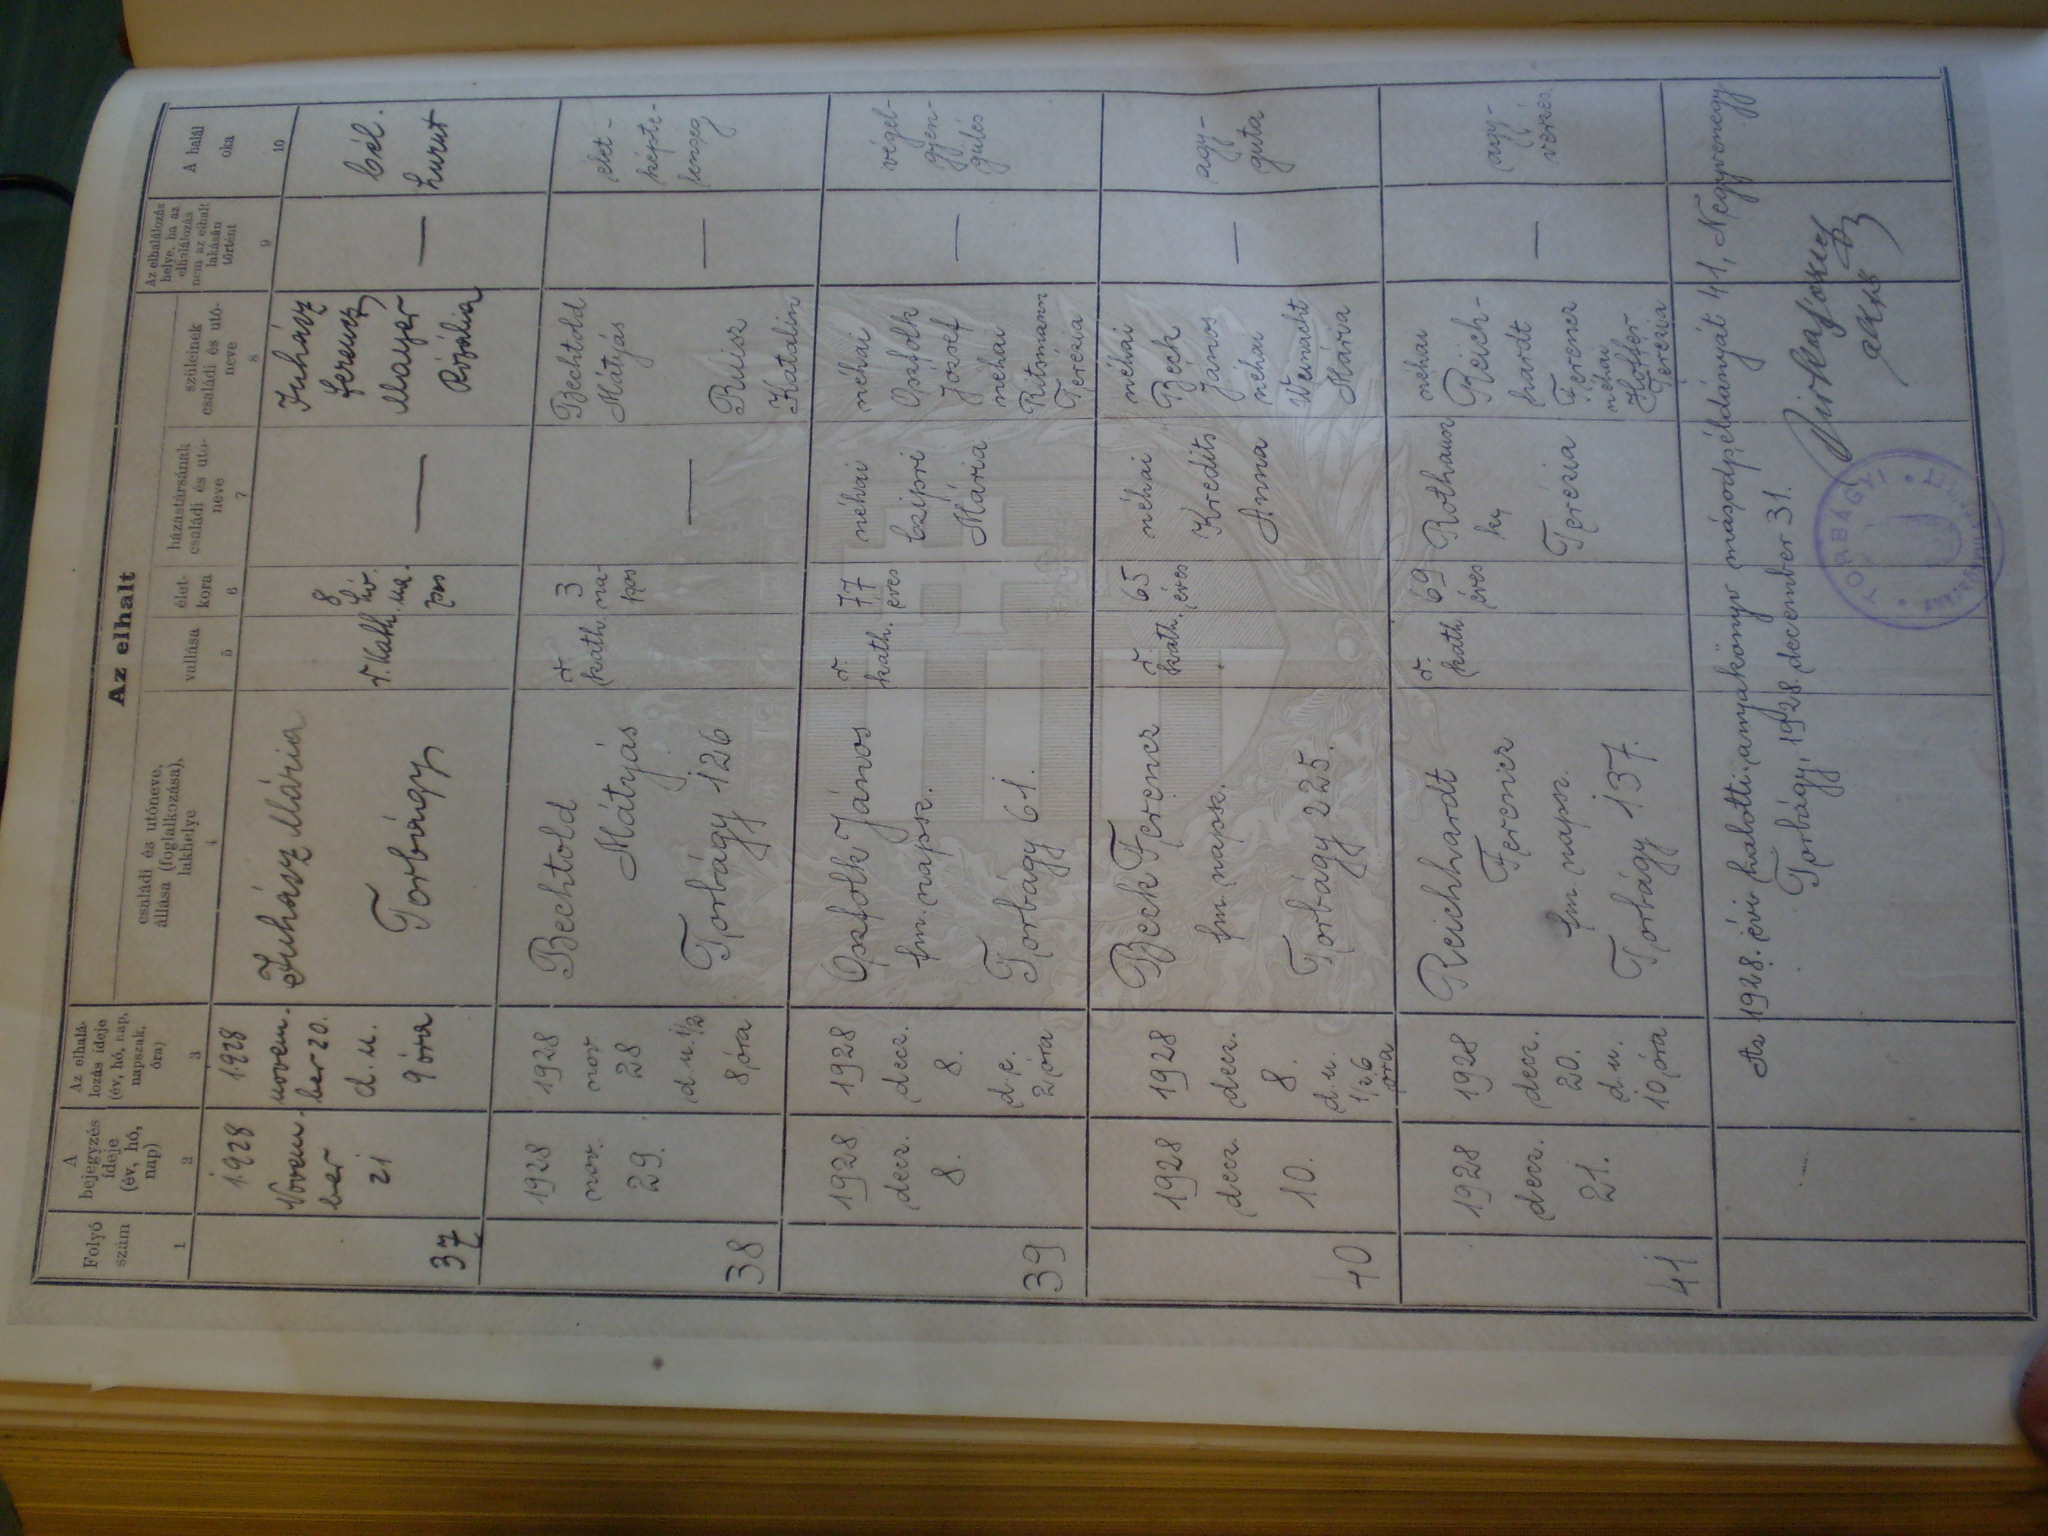 Az elhalt
Folyó
szám
A
bejegyzés
ideje
(év, hó,
nap)
Az elhalá-
lozás ideje
(év, hó, nap,
napszak,
óra)
családi és utóneve,
állása (foglalkozása),
lakhelye
vallása
élet-
kora
házastársának
családi és utó-
neve
szüleinek
családi és utó-
neve
Az elhalálozás
helye, ha az
elhalálozás
nem az elhalt
lakásán
történt
A halál
oka
1
2
3
4
5
6
7
8
9
10
37
1928
Novem-
ber
21
1928
novem-
ber 20.
d. u.
9 óra
Juhász Mária
Torbágy
r. kath.
8
hó.
na-
pos
—
Juhász
Ferencz
Mayer
Rozália
—
bél-
hurut
38
1928
nov.
29.
1928
nov
28
d. u. 1/2
8 óra
Bechtold
Mátyás
Torbágy 126
r.
kath.
3
na-
pos
—
Bechtold
Mátyás
Ruisz
Katalin
—
élet-
képte-
lenség
39
1928
decz.
8.
1928
decz.
8.
d. e.
2 óra
Oszfolk János
fm. napsz.
Torbágy 61.
r.
kath.
77
éves
néhai
Czipri
Mária
néhai
Oszfolk
József
néhai
Ritmann
Terézia
—
végel-
gyen-
gülés
40
1928
decz.
10.
1928
decz.
8.
d. u.
1/2 6
óra
Beck Ferencz
fm. napsz.
Torbágy 225.
r.
kath.
65
éves
néhai
Kredits
Anna
néhai
Beck
János
néhai
Weinacht
Mária
—
agy-
guta
41
1928
decz.
21.
1928
decz.
20.
d. u.
10 óra
Reichhardt
Ferencz
fm napsz.
Torbágy 137.
r.
kath.
69
éves
Rothaus
ky
Terézia
néhai
Reich-
hardt
Ferencz
néhai
Terézia
—
agy-
vérzés
Az 1928. évi halotti anyakönyv másodpéldányát 41, Negyvenegy
Torbágy, 1928. december 31.
TORBÁGYI